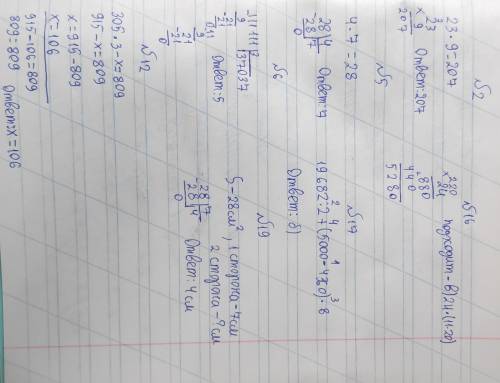 №2
23 · 9 = 207
23
× 9
207
Ответ: 207
№5
4 · 7 = 28
28 4
28 7
0
Ответ: 7
№6
111111 3
9 37037
21
21
0 11
9
21
21
0
Ответ: 5
№12
305 · 3 - x = 809
915 - x = 809
x = 915 - 809
x = 106
915 - 106 = 809
809 = 809 Ответ: x = 106
№16
220
× 24
880
440
5280
подходит - в) 24 · (11 · 20)
№17
2 4 1 3
19682 : 2 + (5000 - 4730) · 8
Ответ: б)
№19
S - 28 см², 1 сторона - 7 см
2 сторона - ? см
28 7
28 4
0
Ответ: 4 см